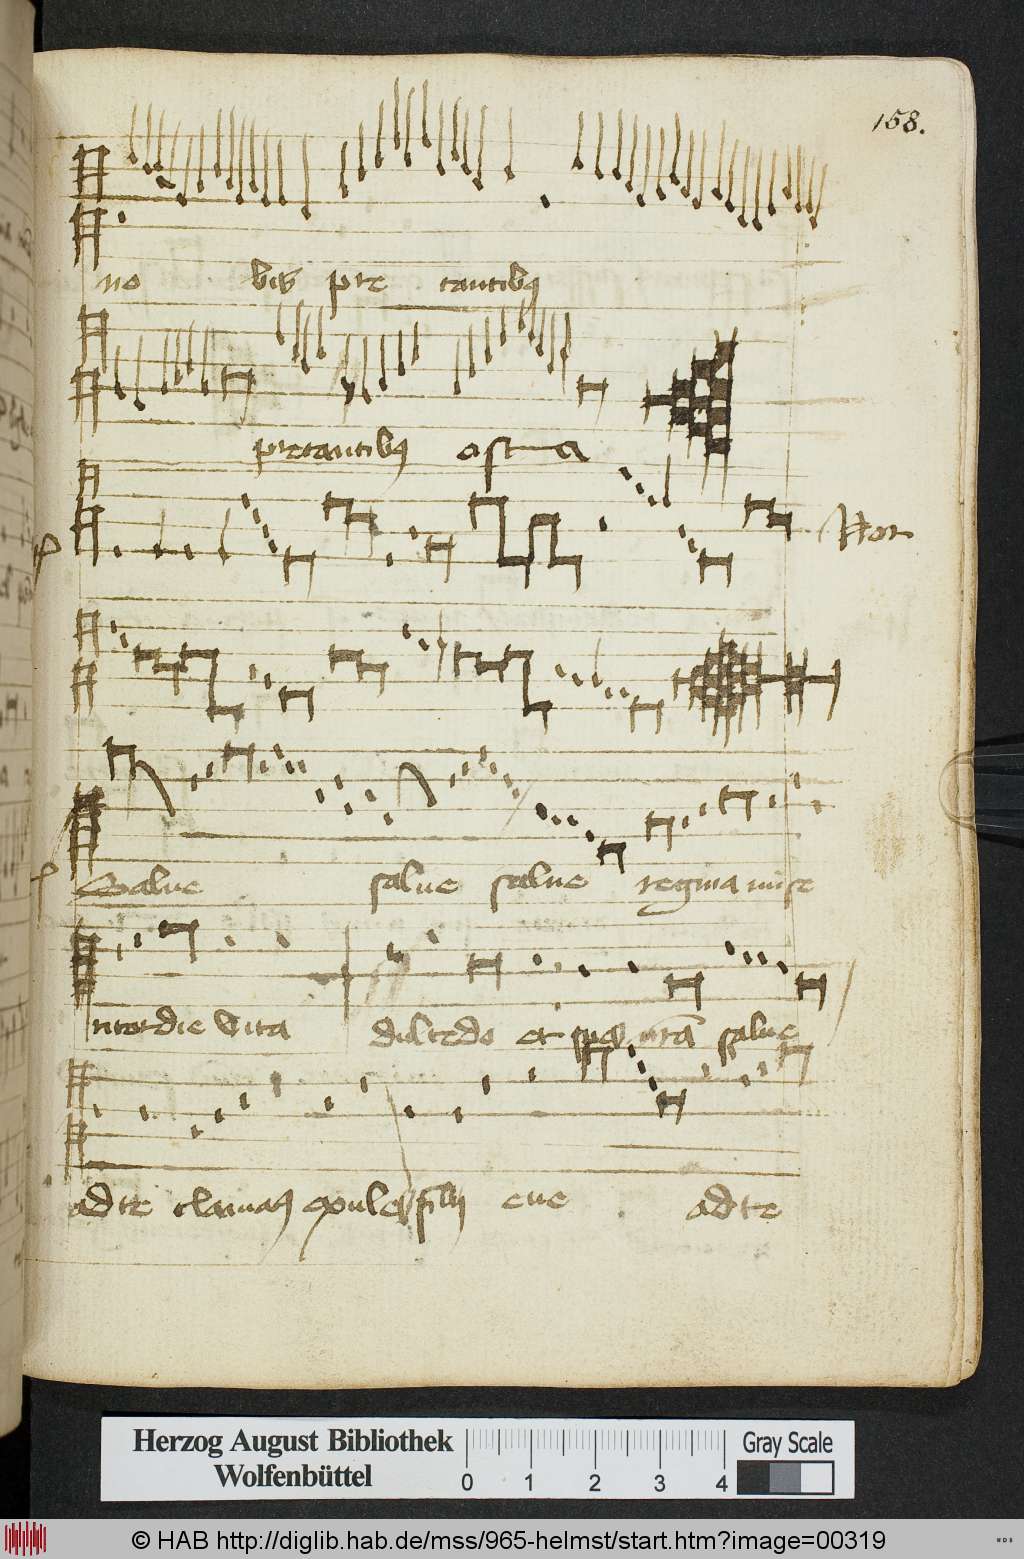 158.
no bis pre cantibus
precantibus ascia
Salue salue salue regina mise
ricordie Vita dulcedo et spes nra salue
ad te clamaus exules filii eue ad te
Herzog August Bibliothek
Wolfenbüttel
0 1 2 3 4
Gray Scale
© HAB http://diglib.hab.de/mss/965-helmst/start.htm?image=00319